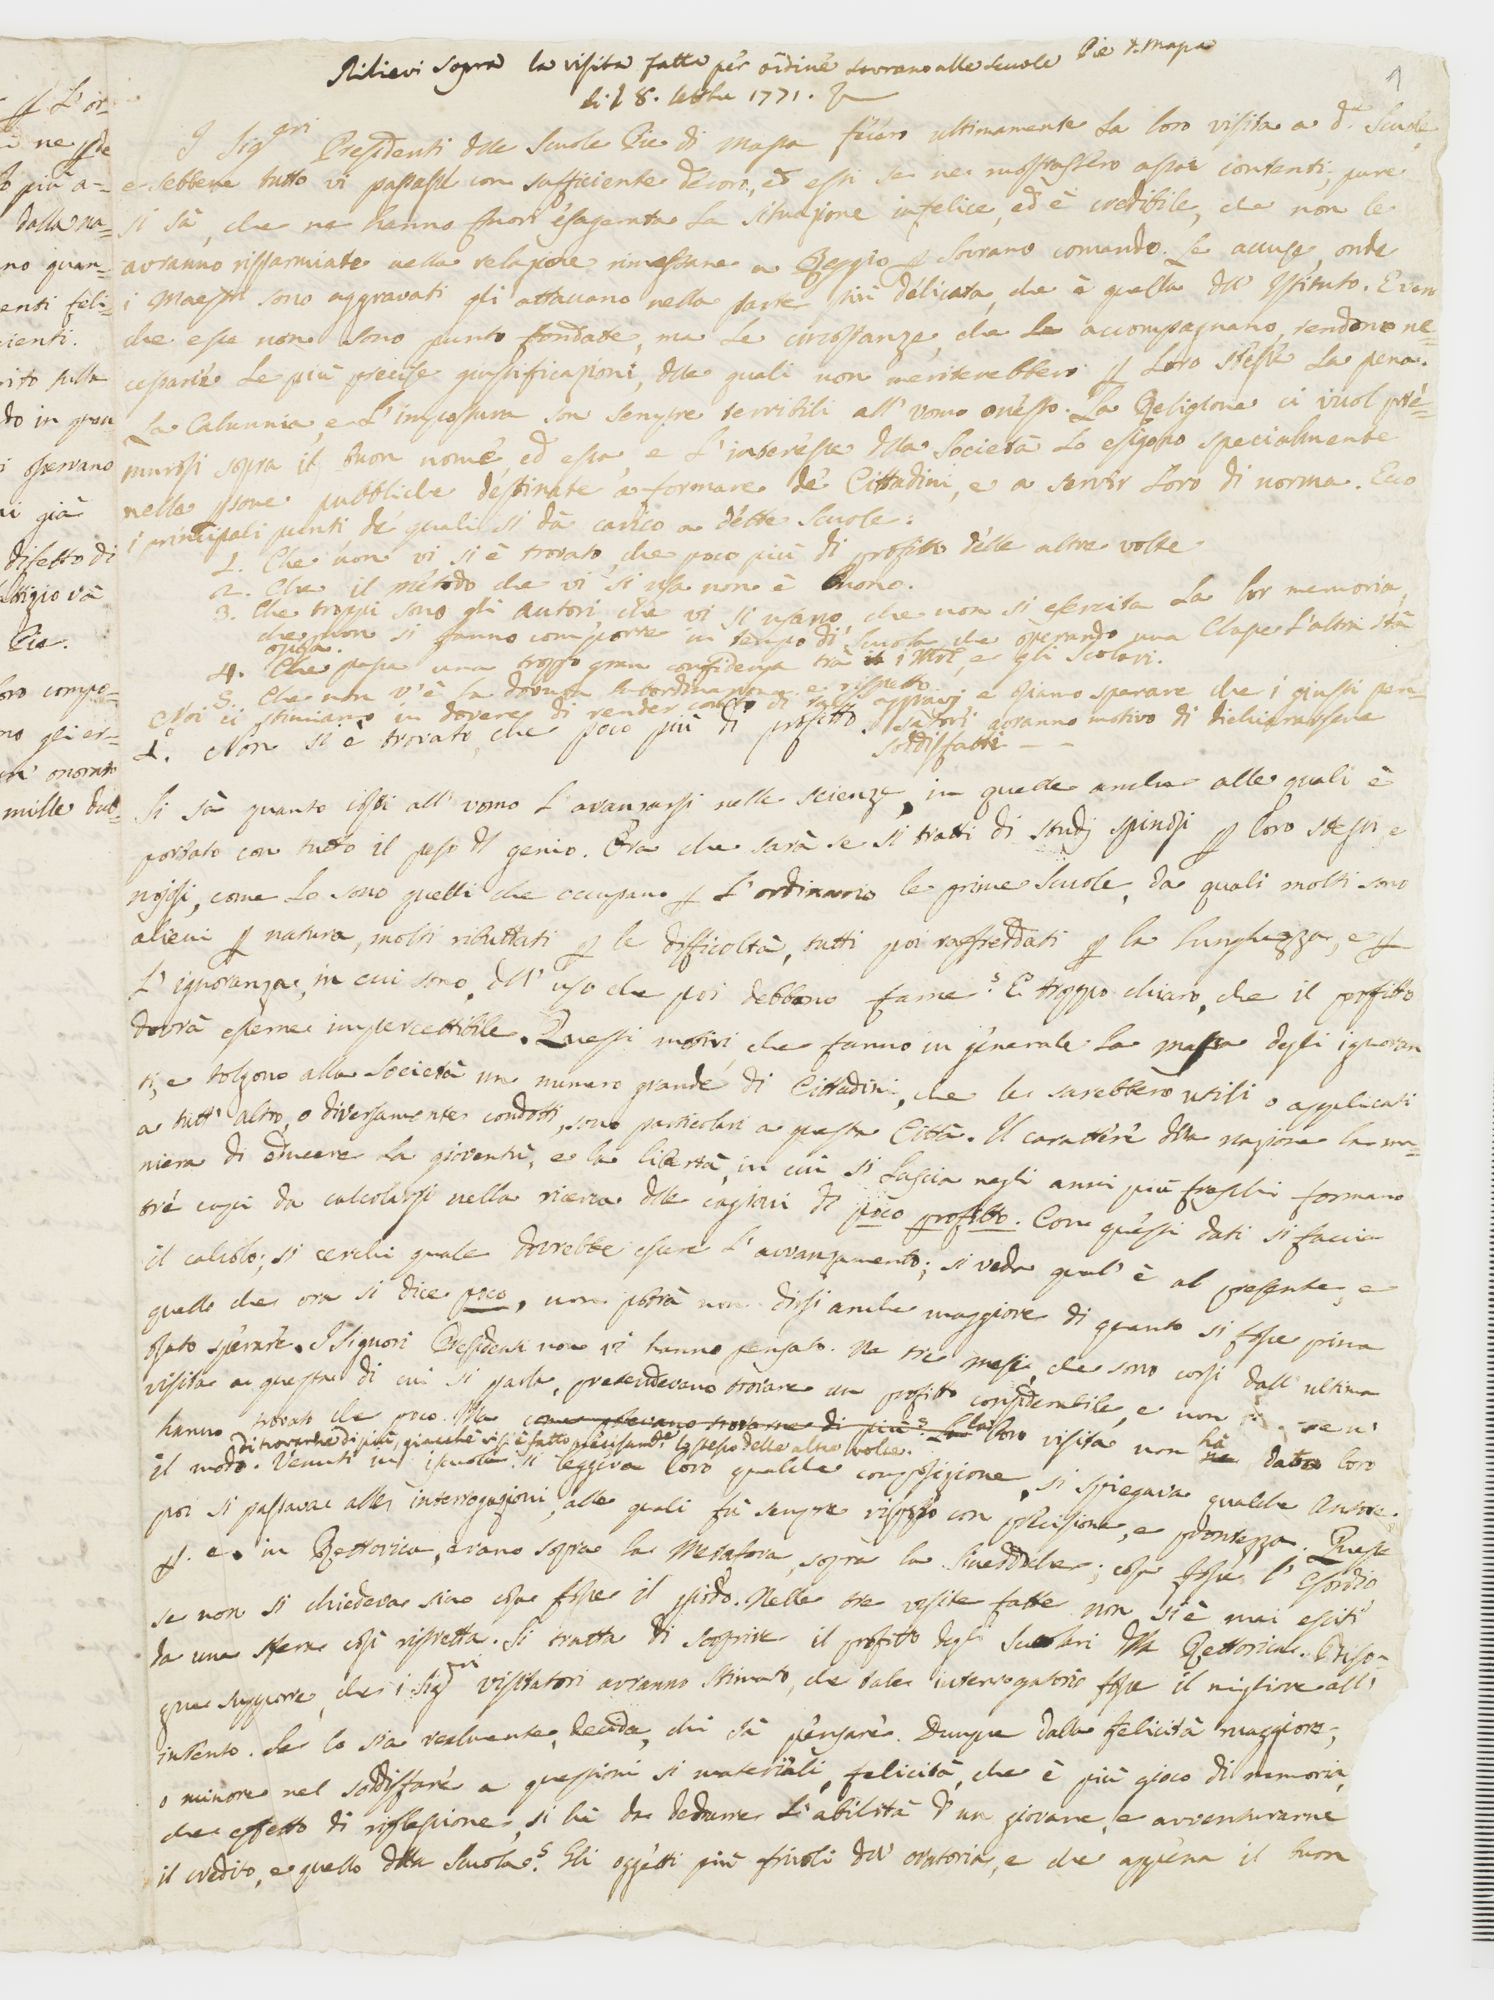 Rilievi sopra la visita fatta per ordine sovrano alle Scuole Pie di Massa
li 8. 1771.
1
I Sig.ri Presidenti dlle Scuole Pie di Massa fecero ultimamente la loro visita a d.e Scuole,
e sebbene tutto vi passasse con sufficiente decoro, ed essi se ne mostrassero assai contenti, pure
si sà, che ne hanno fuori esagerata la situazione infelice, ed è credibile, che non le
avranno risparmiate nella relazione rimessane a Reggio p Sovrano comando. Le accuse, onde
i Maestri sono aggravati gli attaccano nella parte più delicata, che è quella dll' Istituto. E ben
che esse non sono punto fondate, ma le circostanze, che le accompagnano, rendono ne=
cessarie le più precise giustificazioni, dlle quali non meriterebbero p loro stesse la pena.
La Calunnia, e l'impostura son sempre terribili all' uomo onesto. La Religione ci vuol pre=
murosi sopra il buon nome, ed essa, e l'interesse dlla Società lo esigono specialmente
nelle psone pubbliche destinate a formare de' Cittadini, e a servir loro di norma. Ecco
i principali punti de' quali si dà carico a dette Scuole:
1. Che non vi si è trovato, che poco più di profitto delle altre volte
2. Che il metodo che vi si usa non è buono.
3. Che troppi sono gli Autori, che vi si usano, che non si esercita la lor memoria,
che non si fanno comporre in tempo di Scuola, che operando una Classe l'altra stà
oziosa.
4. Che passa una troppo gran confidenza trà i Mri, e gli Scolari.
5. Che non v'è la dovuta subordinazione e rispetto
Noi ci stimiamo in dovere di render conto di tali aggravj e osiamo sperare che i giusti pen=
satori avranno motivo di dichiararsene
soddisfatti
1. Non si è trovato, che poco più di profitto.
Si sà quanto costi all' uomo l'avanzarsi nelle scienze, in quelle anche alle quali è
portato con tutto il peso dl genio. Ora che sarà se si tratti di studj spinosi p loro stessi e
nojosi, come lo sono quelli che occupano p l'ordinario le prime Scuole, da quali molti sono
alieni p natura, molti ributtati p le difficoltà, tutti poi raffreddati p la lunghezza, e p
l'ignoranza, in cui sono, dll' uso che poi debbono farne? È troppo chiaro, che il profitto
dovrà esserne impercettibile. Questi motivi, che fanno in generale la massa degli ignoran
ti, e tolgono alla Società un numero grande di Cittadini, che le sarebbero utili o applicati
a tutt' altro, o diversamente condotti, sono particolari a questa Città. Il carattere dlla nazione la ma=
niera di educare la gioventù, e la libertà, in cui si lascia negli anni più freschi formano
tre capi da calcolarsi nella ricerca dlle cagioni dl poco profitto. Con questi dati si faccia
il calcolo; si cerchi quale dovrebbe essere l'avvanzamento; si veda qual' è al presente, e
quello che ora si dice poco, non potrà non dirsi anche maggiore di quanto si fosse prima
osato sperare. I Signori Presidenti non vi hanno pensato. Ne tre mesi, che sono corsi dall' ultima
visita a questa di cui si parla, pretendevano trovare un profitto considerabile, e non
hanno trovato che poco. Ma come potevano trovarne di più? La loro visita non hà dato loro
di trovarne di più, giacchè si è fatto precisam.e lo stesso delle altre volte.
il modo. Venuti in iscuola si leggeva loro qualche composizione, si spiegava qualche Autore.
poi si passava alle interrogazioni, alle quali fù sempre risposto con precisione, e prontezza. Queste
p. e. in Rettorica, erano sopra la Metafora, sopra la Sineddoche; cosa fosse l'Esordio,
se non si chiedeva sin cosa fosse il piedo. Nelle tre visite fatte non si è mai esciti
da una sfera così ristretta. Si tratta di scoprire il profitto degli Scolari dlla Rettorica. Biso=
gna supporre, che i Sig.ri Visitatori avranno stimato, che tale interrogatorio fosse il migliore all'
intento. Se lo sia realmente, decida, chi sà pensare. Dunque dalla felicità maggiore,
o minore nel soddisfare a questioni sì materiali, felicità, che è più gioco di memoria,
che effetto di riflessione, si hà da dedurre l'abilità d'un giovane, e avventurarne
il credito, e quello dlla Scuola? Gli oggetti più frivoli dll' oratoria, e che appena il buon